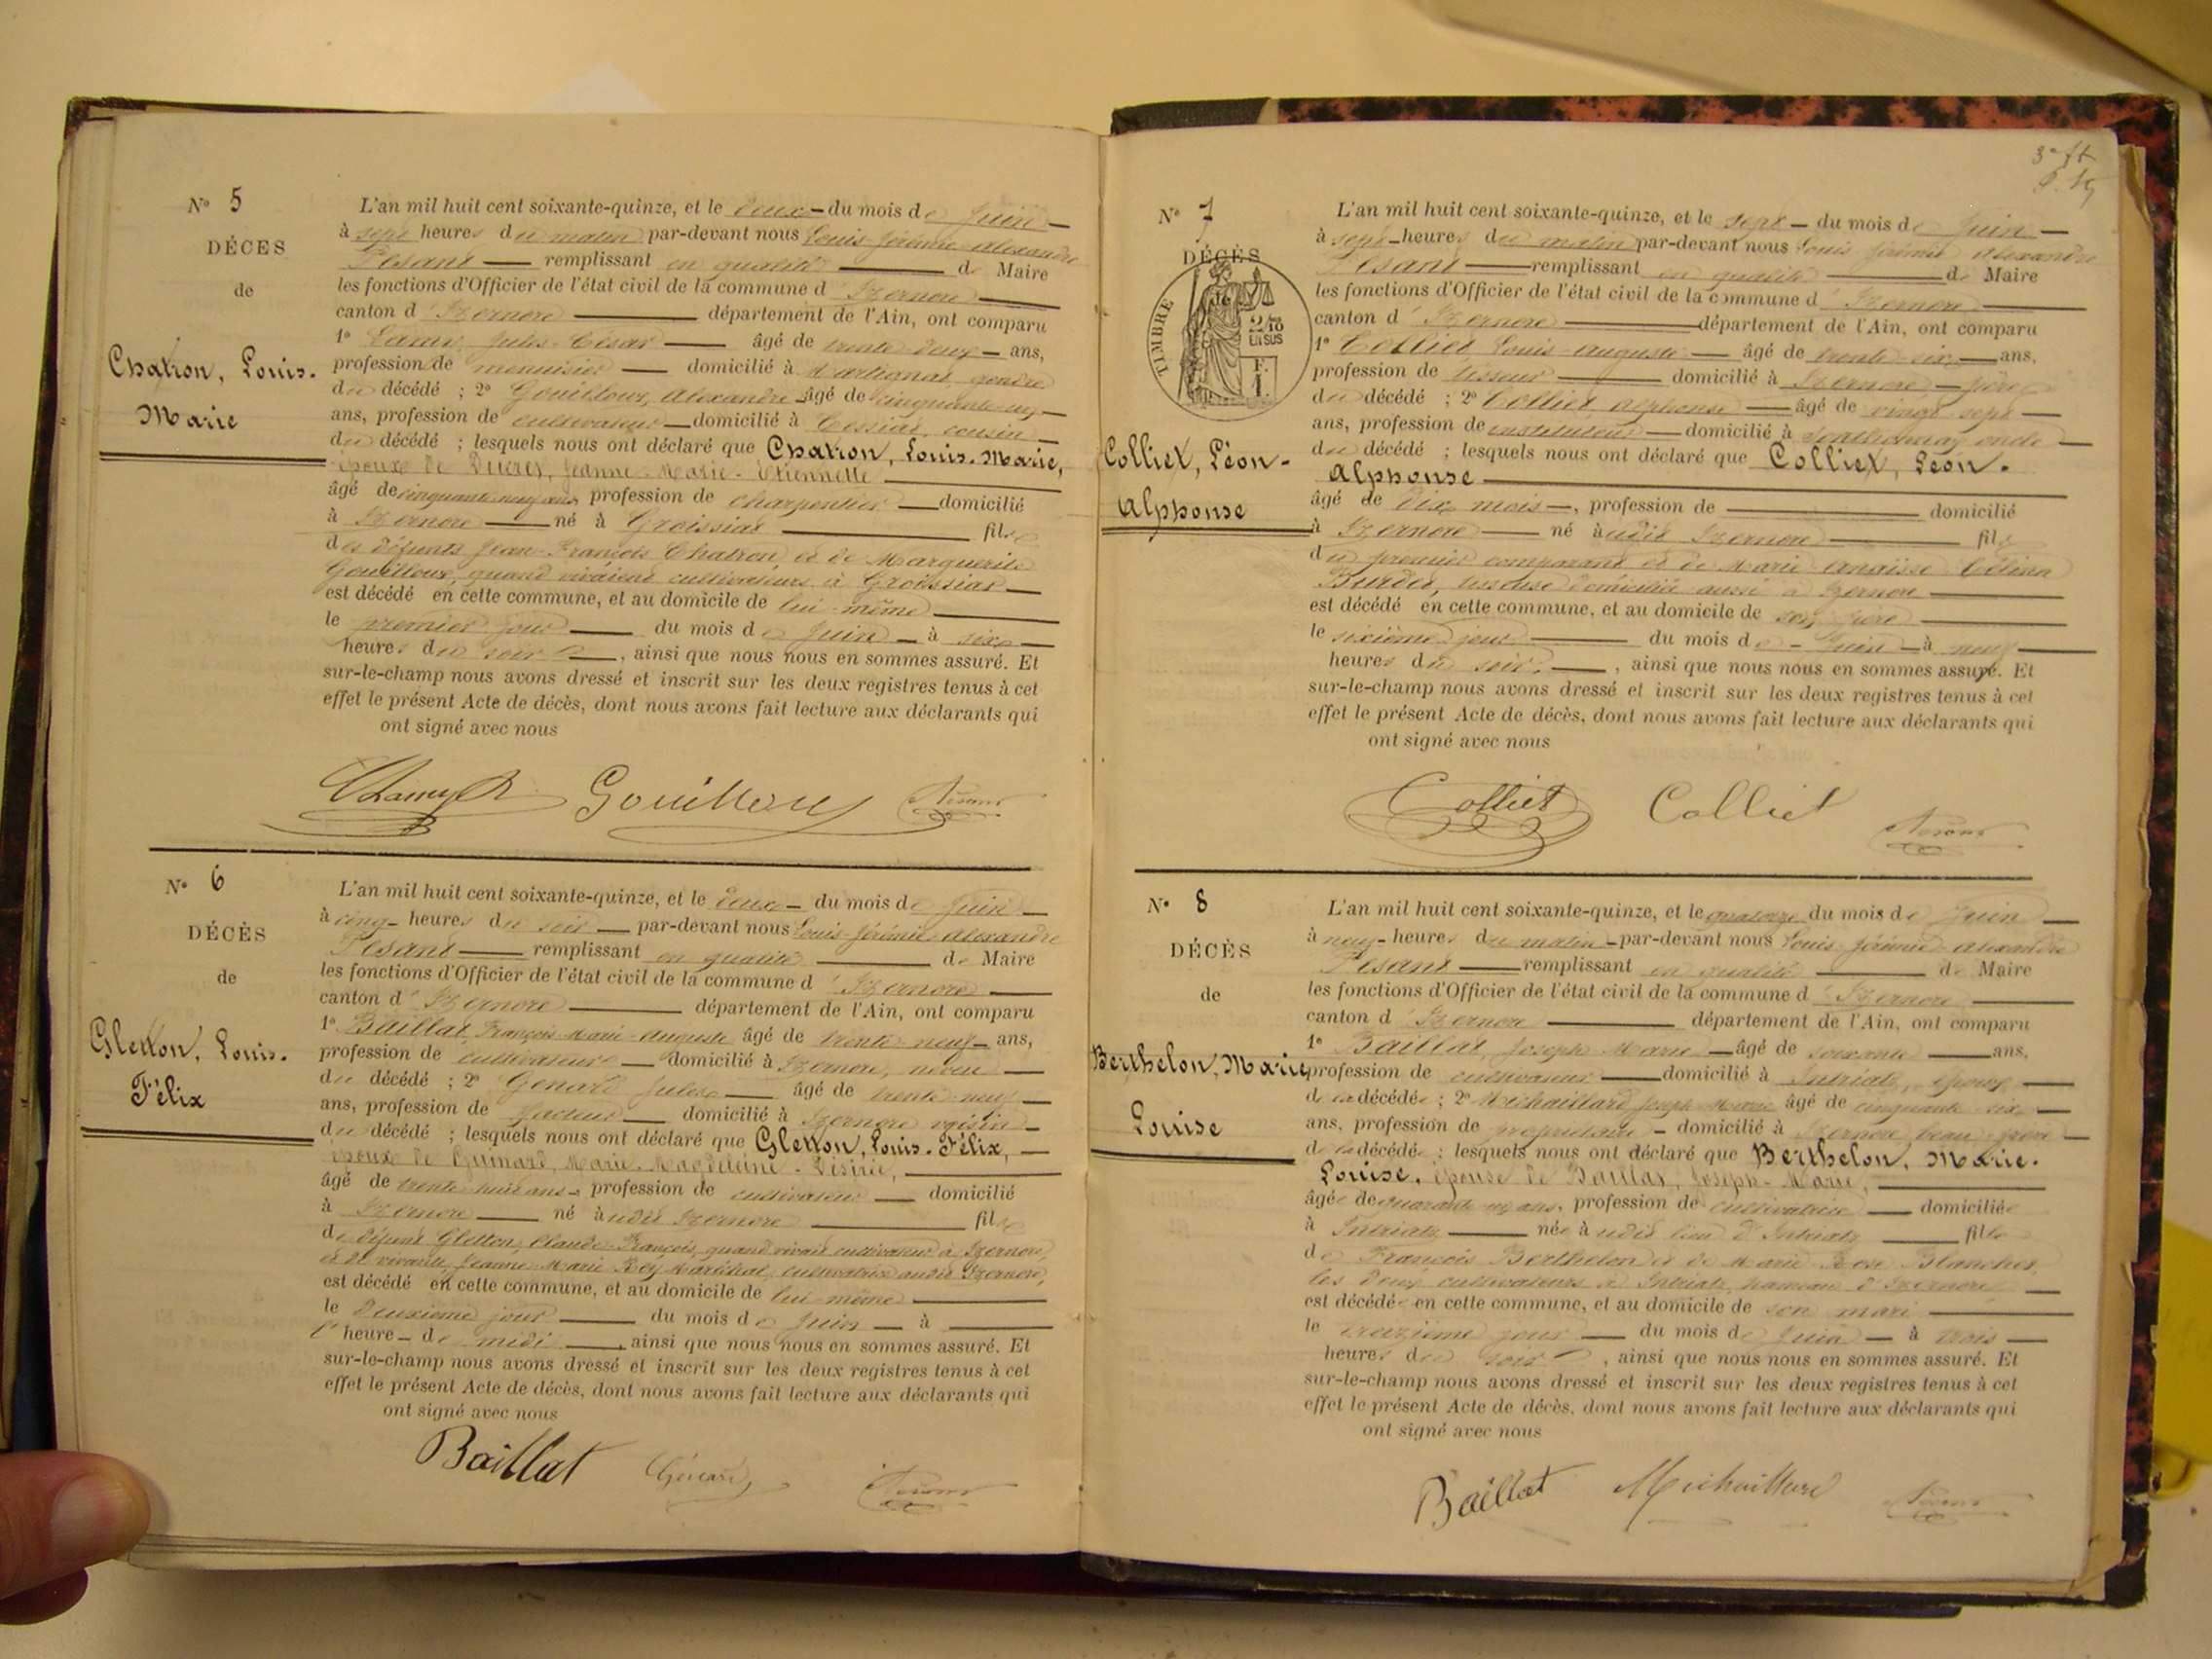 Nº 5
DÉCES
de
Chatron, Louis-
Marie
L'an mil huit cent soixante-quinze, et le deux du mois de Juin
à sept heures du matin par-devant nous Louis Jérémie Alexandre
Pesant remplissant en qualité de Maire
les fonctions d'Officier de l'état civil de la commune d'Izernore
canton d'Izernore département de l'Ain, ont comparu
1º Jules César âgé de trente deux ans,
profession de menuisier domicilié à Martignat, gendre
du décédé ; 2º Gouilloux, Alexandre âgé de cinquante
ans, profession de cultivateur domicilié à Cessiat, cousin
du décédé ; lesquels nous ont déclaré que Chatron, Louis-Marie,
époux de Ducret, Jeanne-Marie-Etiennette
âgé de cinquante neuf ans profession de charpentier domicilié
à Izernore né à Groissiat fils
des défunts Jean-François Chatron, et de Marguerite
Gouilloux, quand vivaient cultivateurs à Groissiat
est décédé en cette commune, et au domicile de lui-même
le premier jour du mois de Juin à six
heures du soir, ainsi que nous nous en sommes assuré. Et
sur-le-champ nous avons dressé et inscrit sur les deux registres tenus à cet
effet le présent Acte de décès, dont nous avons fait lecture aux déclarants qui
ont signé avec nous
Gouilloux Pesant
Nº 6
DÉCÈS
de
Gletton, Louis-
Félix
L'an mil huit cent soixante-quinze, et le deux du mois de Juin
à cinq heures du soir par-devant nous Louis-Jérémie-Alexandre
Pesant remplissant en qualité de Maire
les fonctions d'Officier de l'état civil de la commune d'Izernore
canton d'Izernore département de l'Ain, ont comparu
1º Baillat, François-Marie-Auguste âgé de trente-neuf ans,
profession de cultivateur domicilié à Izernore, neveu
du décédé ; 2º Genard Jules âgé de trente-neuf
ans, profession de facteur domicilié à Izernore voisin
du décédé ; lesquels nous ont déclaré que Gletton, Louis-Félix,
époux de Guinard, Marie-Magdeleine-Désirée,
âgé de trente huit ans profession de cultivateur domicilié
à Izernore né audit Izernore fils
de défunt Gletton, Claude-François, quand vivait cultivateur à Izernore,
et de vivante, Jeanne Marie Rey Maréchal, cultivatrice audit Izernore,
est décédé en cette commune, et au domicile de lui-même
le deuxième jour du mois de Juin à
l'heure de midi, ainsi que nous nous en sommes assuré. Et
sur-le-champ nous avons dressé et inscrit sur les deux registres tenus à cet
effet le présent Acte de décès, dont nous avons fait lecture aux déclarants qui
ont signé avec nous
Baillat Génard Pesant
Nº 7
DÉCÈS
de
TIMBRE
2/10
EN SUS
Colliet, Léon-
Alphonse
L'an mil huit cent soixante-quinze, et le sept du mois de Juin
à sept heures du matin par-devant nous Louis Jérémie Alexandre
Pesant remplissant en qualité de Maire
les fonctions d'Officier de l'état civil de la commune d'Izernore
canton d'Izernore département de l'Ain, ont comparu
1º Colliet Louis-Auguste âgé de trente-six ans,
profession de tisseur domicilié à Izernore, père
du décédé ; 2º Colliet, Alphonse âgé de vingt-sept
ans, profession de instituteur domicilié à Sonthonnax oncle
du décédé ; lesquels nous ont déclaré que Colliet, Léon-
Alphonse
âgé de dix mois, profession de domicilié
à Izernore né audit Izernore fils
du premier comparant et de Marie Célina
Burdet, domiciliée aussi à Izernore
est décédé en cette commune, et au domicile de son père
le sixième jour du mois de Juin à neuf
heures du soir, ainsi que nous nous en sommes assuré. Et
sur-le-champ nous avons dressé et inscrit sur les deux registres tenus à cet
effet le présent Acte de décès, dont nous avons fait lecture aux déclarants qui
ont signé avec nous
Colliet Colliet Pesant
Nº 8
DÉCÈS
de
Berthelon, Marie
Louise
L'an mil huit cent soixante-quinze, et le quatorze du mois de Juin
à neuf heures du matin par-devant nous Louis-Jérémie-Alexandre
Pesant remplissant en qualité de Maire
les fonctions d'Officier de l'état civil de la commune d'Izernore
canton d'Izernore département de l'Ain, ont comparu
1º Baillat, Joseph Marie âgé de soixante ans,
profession de cultivateur domicilié à Intriatz, époux
de la décédée ; 2º Michaillard Joseph Marie âgé de cinquante six
ans, profession de propriétaire domicilié à Izernore beau-frère
de la décédée ; lesquels nous ont déclaré que Berthelon, Marie-
Louise, épouse de Baillat, Joseph-Marie,
âgée de quarante ans, profession de cultivatrice domiciliée
à Intriatz née audit lieu d'Intriatz fille
de François Berthelon et de Marie Rose Blanchet,
les deux cultivateurs à Intriatz, hameau d'Izernore
est décédée en cette commune, et au domicile de son mari
le treizième jour du mois de Juin à trois
heures du soir, ainsi que nous nous en sommes assuré. Et
sur-le-champ nous avons dressé et inscrit sur les deux registres tenus à cet
effet le présent Acte de décès, dont nous avons fait lecture aux déclarants qui
ont signé avec nous
Baillat Michaillard Pesant